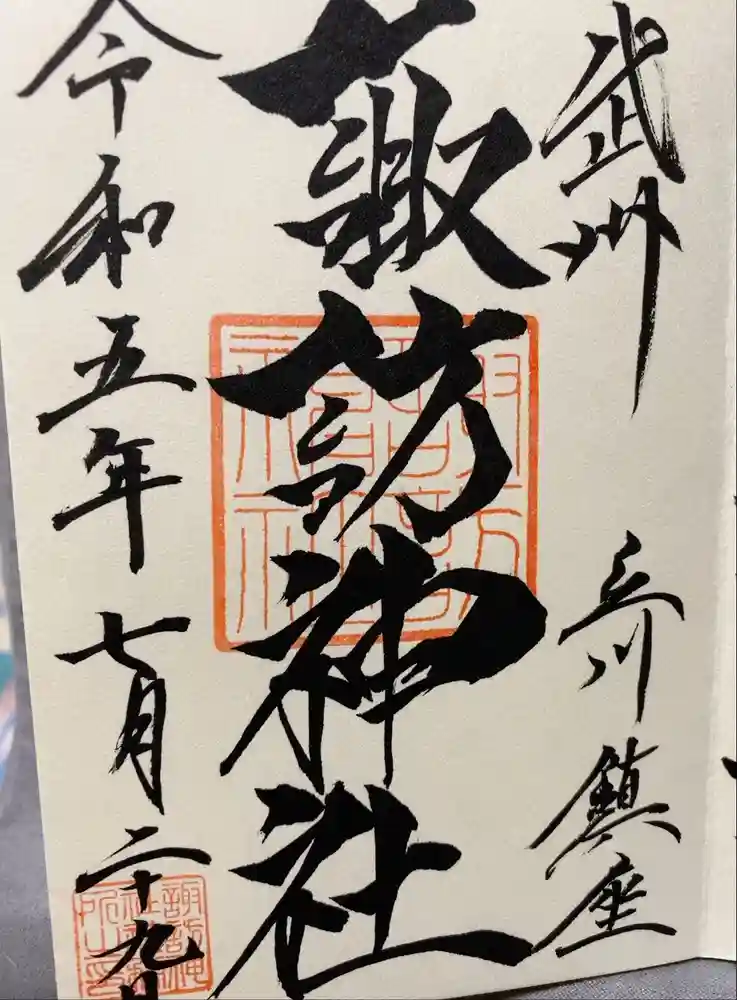 武州 立川 鎮座
諏訪神社
令和五年七月二十九日